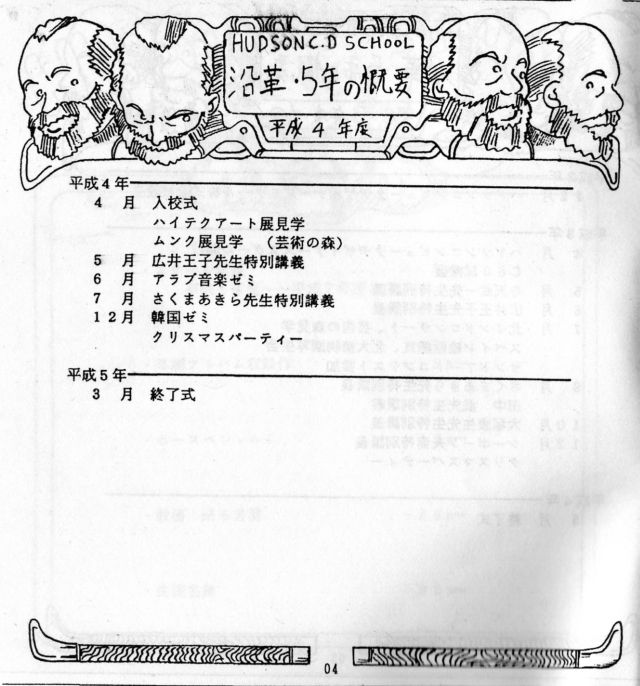 HUDSON C.D SCHOOL
沿革・5年の概要
平成4年度
平成4年
4月 入校式
ハイテクアート展見学
ムンク展見学 (芸術の森)
5月 広井王子先生特別講義
6月 アラブ音楽ゼミ
7月 さくまあきら先生特別講義
12月 韓国ゼミ
クリスマスパーティー
平成5年
3月 終了式
04